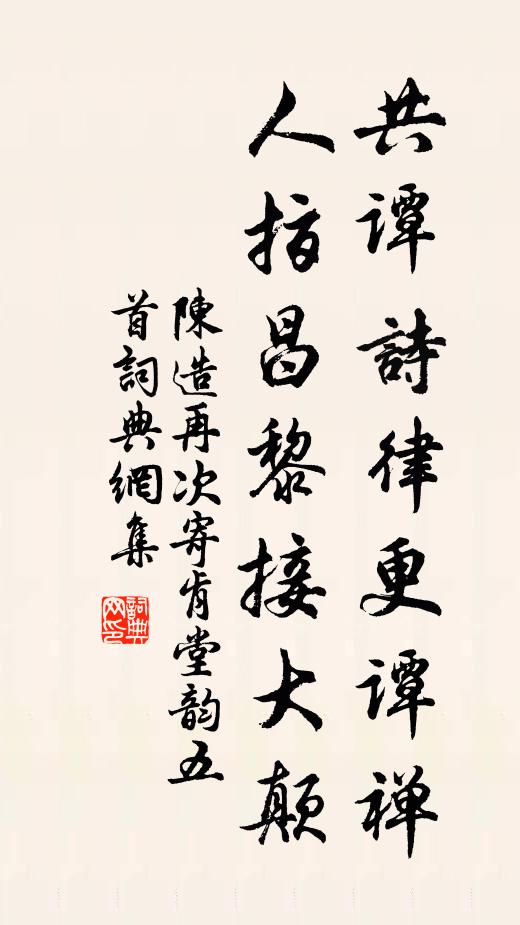 共谭詩律更谭禅
人指昌黎接大颠
陳造再次寄肯堂韵五
首詞典網集
詞典网印